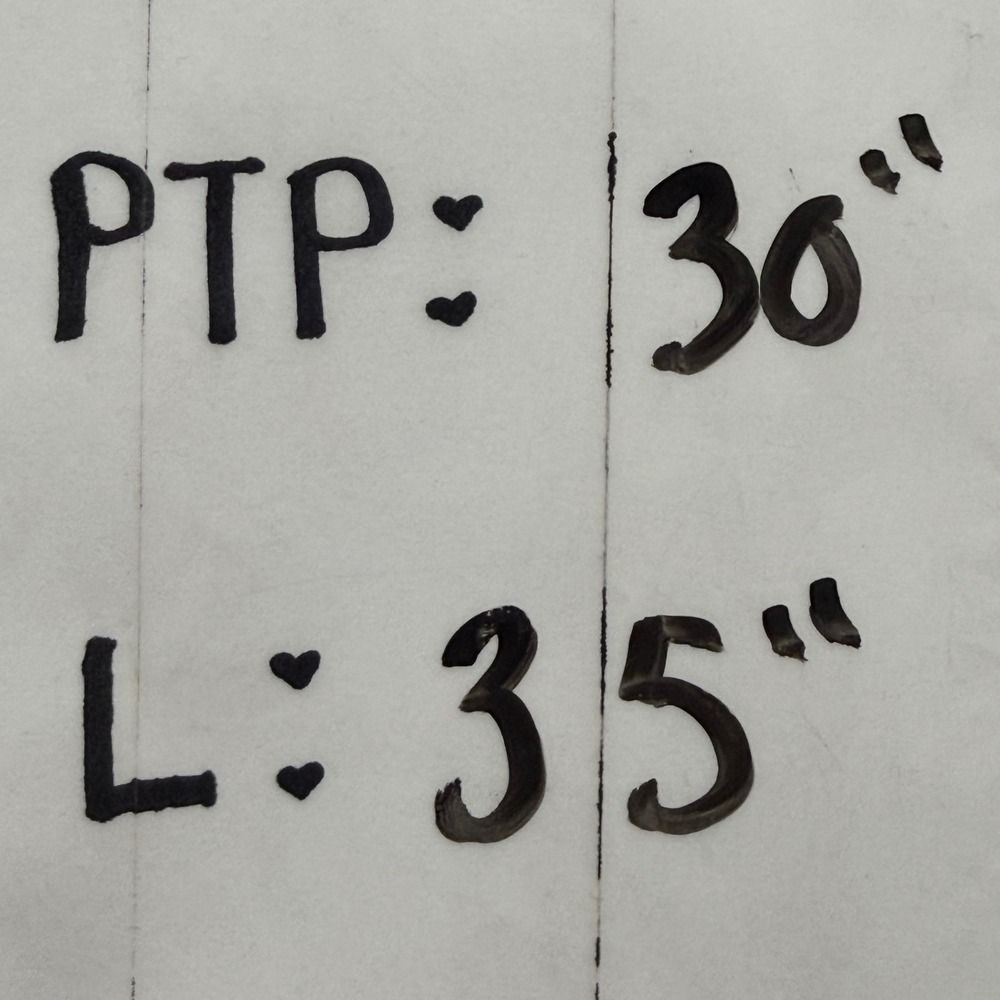 PTP: 30"
L: 35"